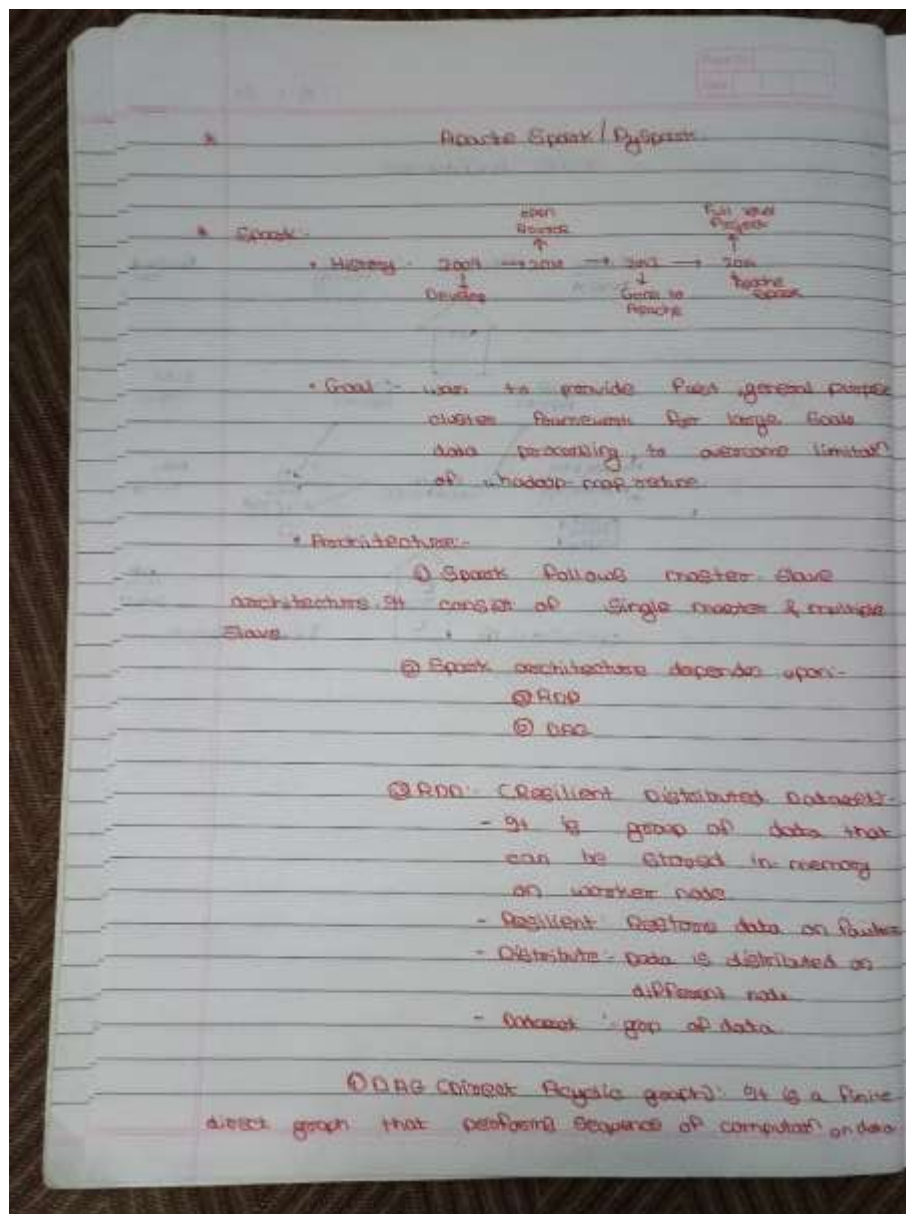 * Apache Spark / PySpark
* Spark :-
open source
Full level Project
• History - 2009 → 2010 → 2013 → 2014
Develop
Gone to Apache
Apache Spark
• Goal :- was to provide fast, general purpose
cluster framework for large Scale
data processing, to overcome limitatn
of hadoop map reduce
• Architecture:-
① Spark follows master slave
architecture. It consist of single master & multiple
Slave
② Spark architecture depends upon:-
ⓐ RDD
ⓑ DAG
ⓐ RDD:- (Resilient Distributed Dataset)-
- It is group of data that
can be stored in-memory
on worker node
- Resilient Restore data on
- Distribute - Data is distributed on
different node
- Dataset :- grop of data
ⓑ DAG (Direct Acyclic graph): It is a finite
direct graph that performs sequence of computatn on data